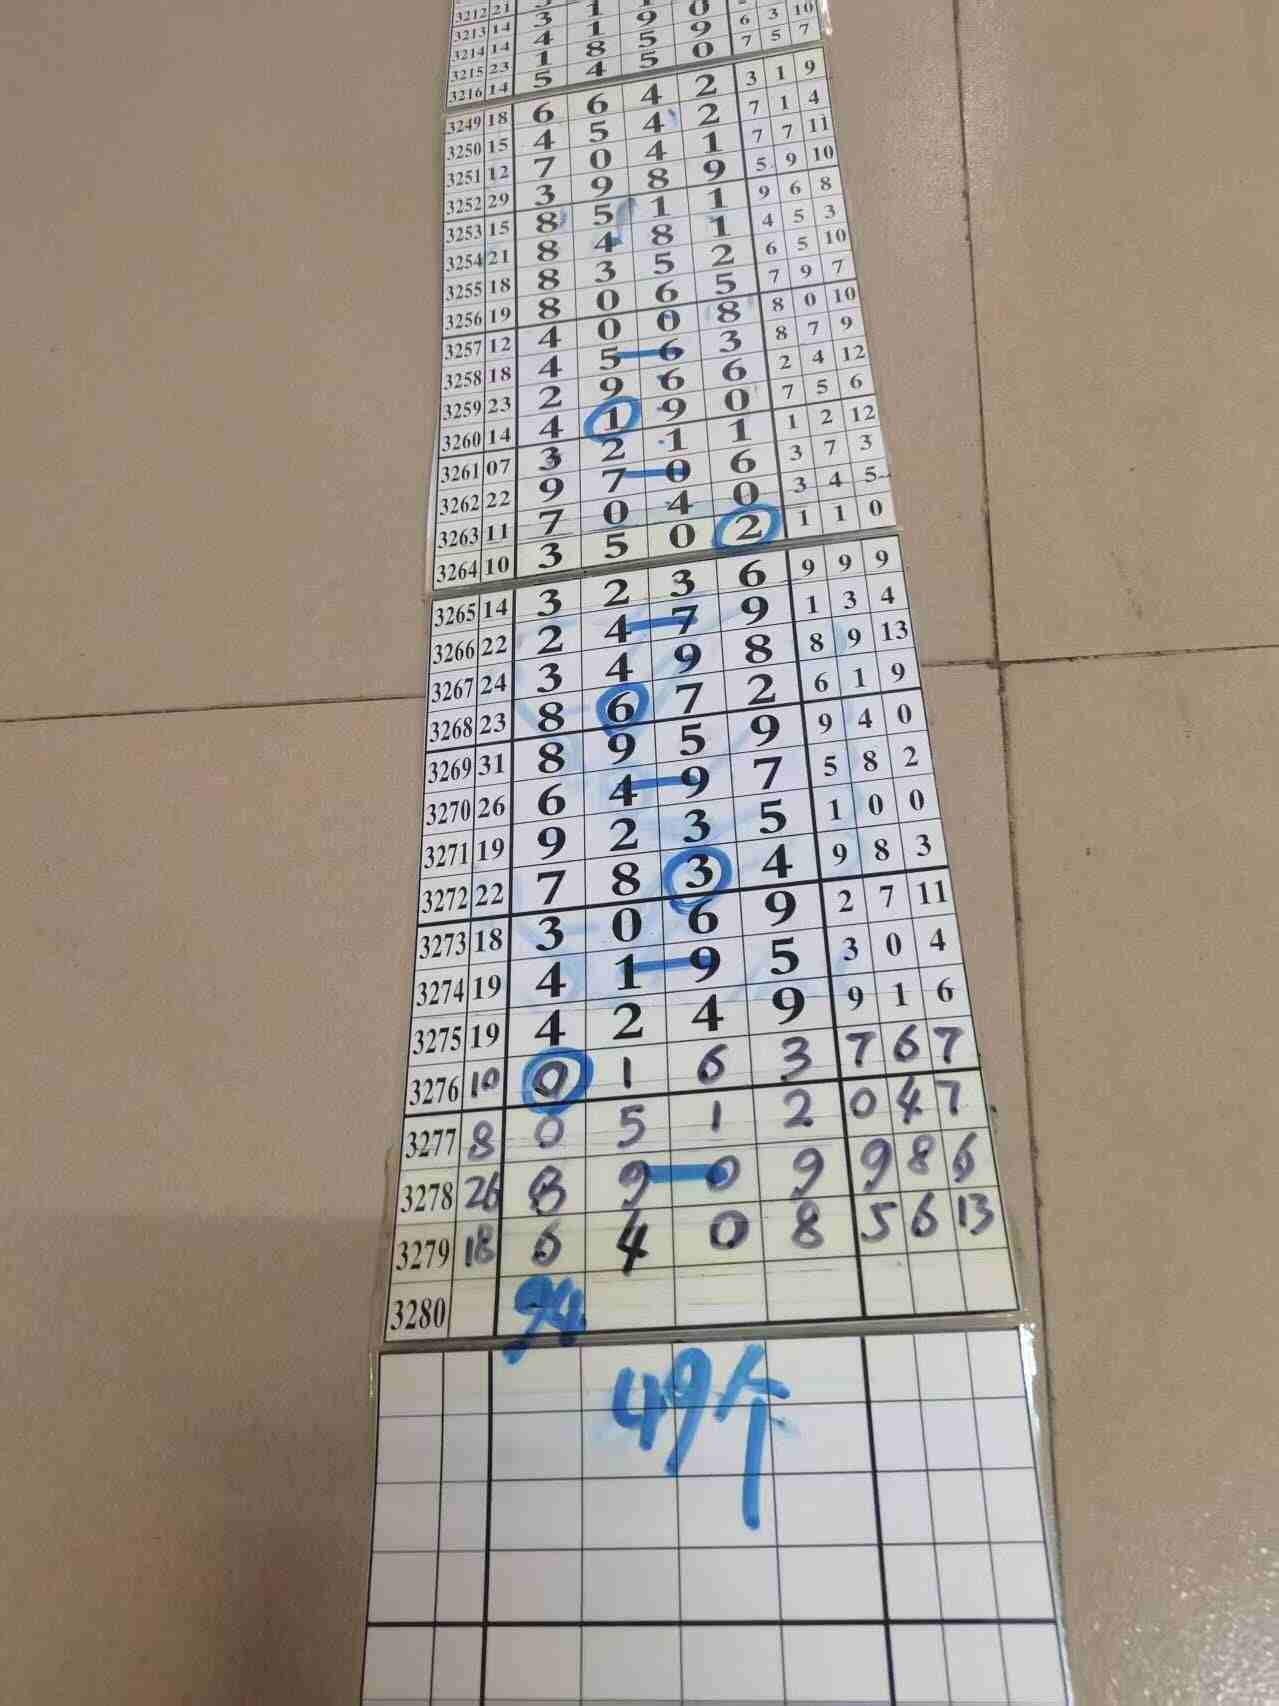 3212 21
3213 14 3 1 9 0 6 3 10
3214 14 4 1 5 9 7 5 7
3215 23 1 8 5 9
3216 14 5 4 5 0
3249 18 6 6 4 2 3 1 9
3250 15 4 5 4 2 7 1 4
3251 12 7 0 4 1 7 7 11
3252 29 3 9 8 9 5 9 10
3253 15 8 5 1 1 9 6 8
3254 21 8 4 8 1 4 5 3
3255 18 8 3 5 2 6 5 10
3256 19 8 0 6 5 7 9 7
3257 12 4 0 0 8 8 0 10
3258 18 4 5 6 3 8 7 9
3259 23 2 9 6 6 2 4 12
3260 14 4 1 9 0 7 5 6
3261 07 3 2 1 1 1 2 12
3262 22 9 7 0 6 3 7 3
3263 11 7 0 4 0 3 4 5
3264 10 3 5 0 2 1 1 0
3265 14 3 2 3 6 9 9 9
3266 22 2 4 7 9 1 3 4
3267 24 3 4 9 8 8 9 13
3268 23 8 6 7 2 6 1 9
3269 31 8 9 5 9 9 4 0
3270 26 6 4 9 7 5 8 2
3271 19 9 2 3 5 1 0 0
3272 22 7 8 3 4 9 8 3
3273 18 3 0 6 9 2 7 11
3274 19 4 1 9 5 3 0 4
3275 19 4 2 4 9 9 1 6
3276 10 0 1 6 3 7 6 7
3277 8 0 5 1 2 0 4 7
3278 26 8 9 0 9 9 8 6
3279 18 6 4 0 8 5 6 13
3280 94
49个